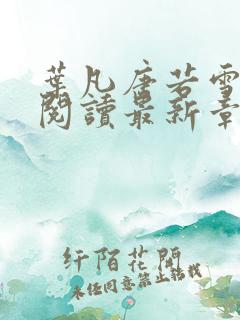 葉凡唐若雪
閱讀最新章
纤陌花開
未经同意禁止转载